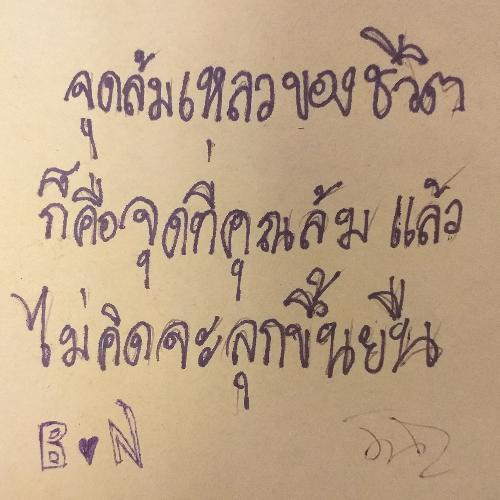 จุดล้มเหลวของชีวิต
ก็คือจุดที่คุณล้ม แล้ว
ไม่คิดจะลุกขึ้นยืน
B♥N